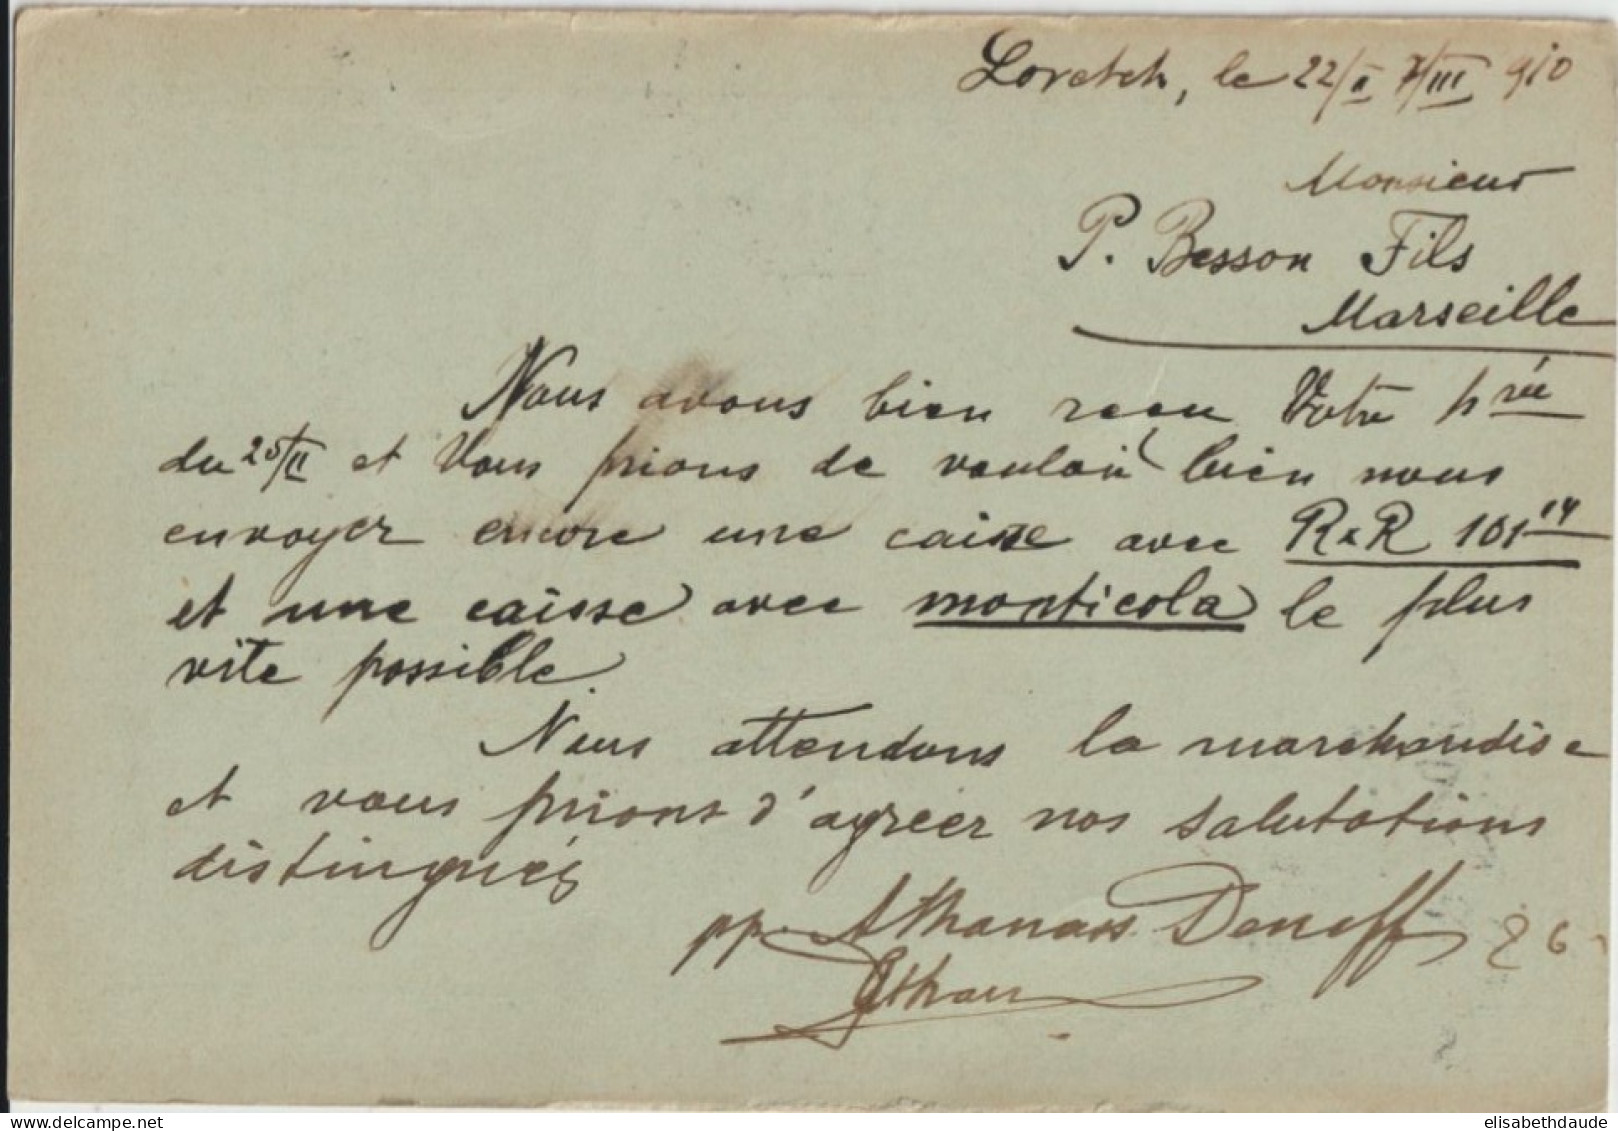 Lovetch, le 22/II 7/III 910
Monsieur
P. Besson Fils
Marseille
Nous avons bien recu Votre hrée
du 25/II et Vous prions de vouloir bien nous
envoyer encore une caisse avec R×R 101 14
et une caisse avec monticola le plus
vite possible.
Nous attendons la marchandise
et vous prions d'agréer nos salutations
distingués
pp. Athanass Deneff 26
delcampe.net
elisabethdaude